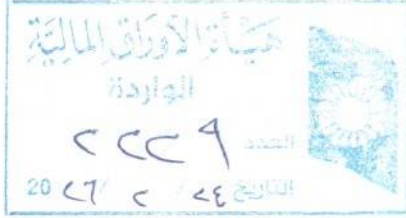 هيئة الأوراق المالية
الواردة
العدد ٢٢٢٩
التاريخ ٢٤ / ٢ / ٢٦ 20